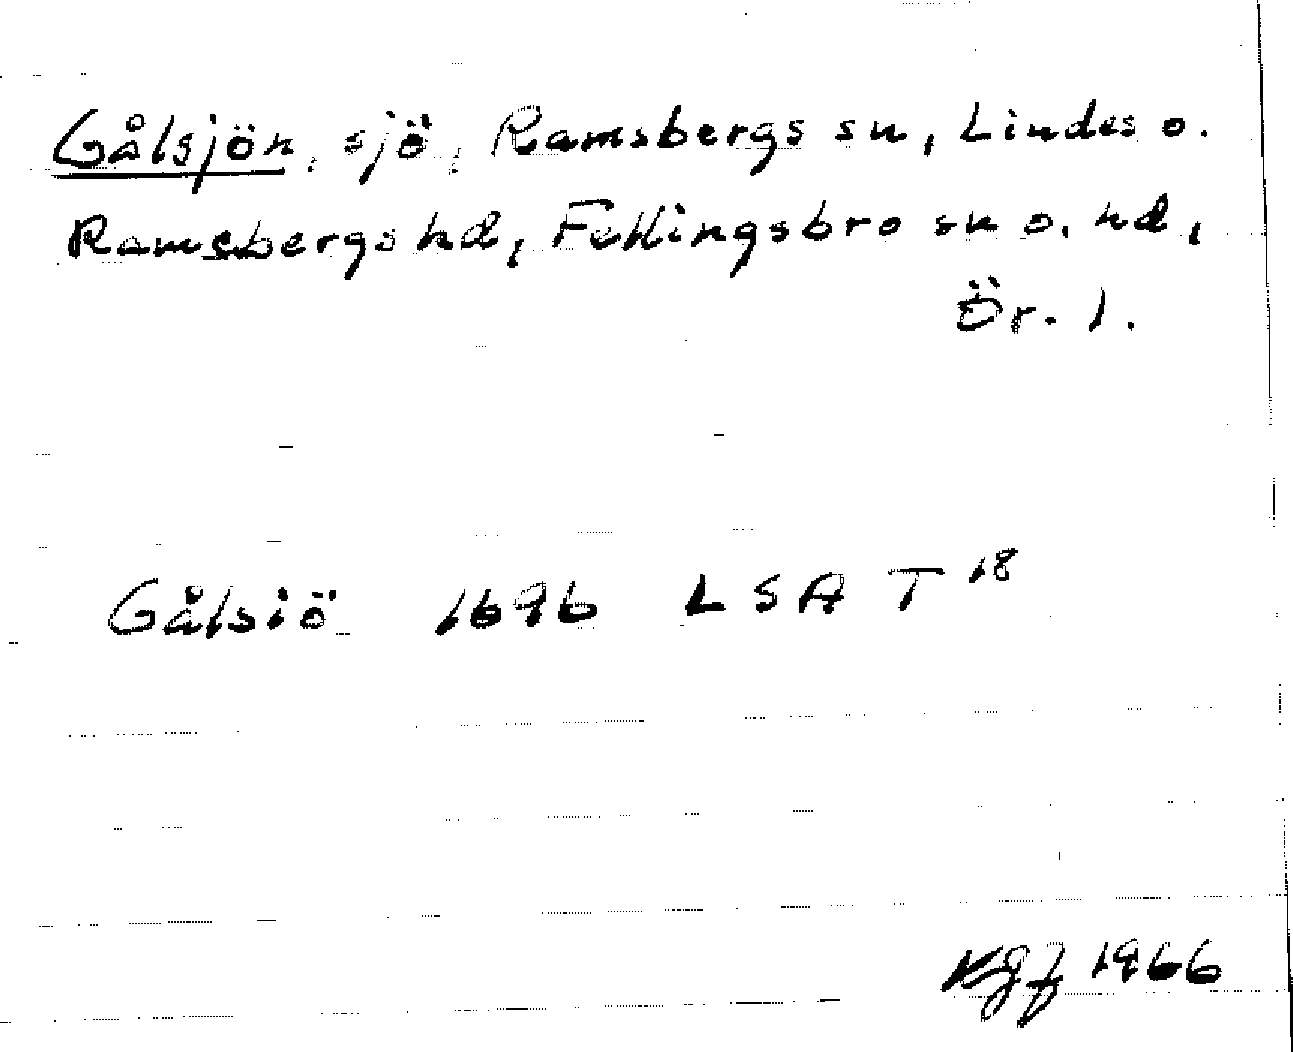 Gålsjön, sjö, Ramsbergs sn, Lindes o.
Ramsbergs hd, Fellingsbro sn o. hd,
Ör. l.
Gålsiö 1696 LSA T 18
1966